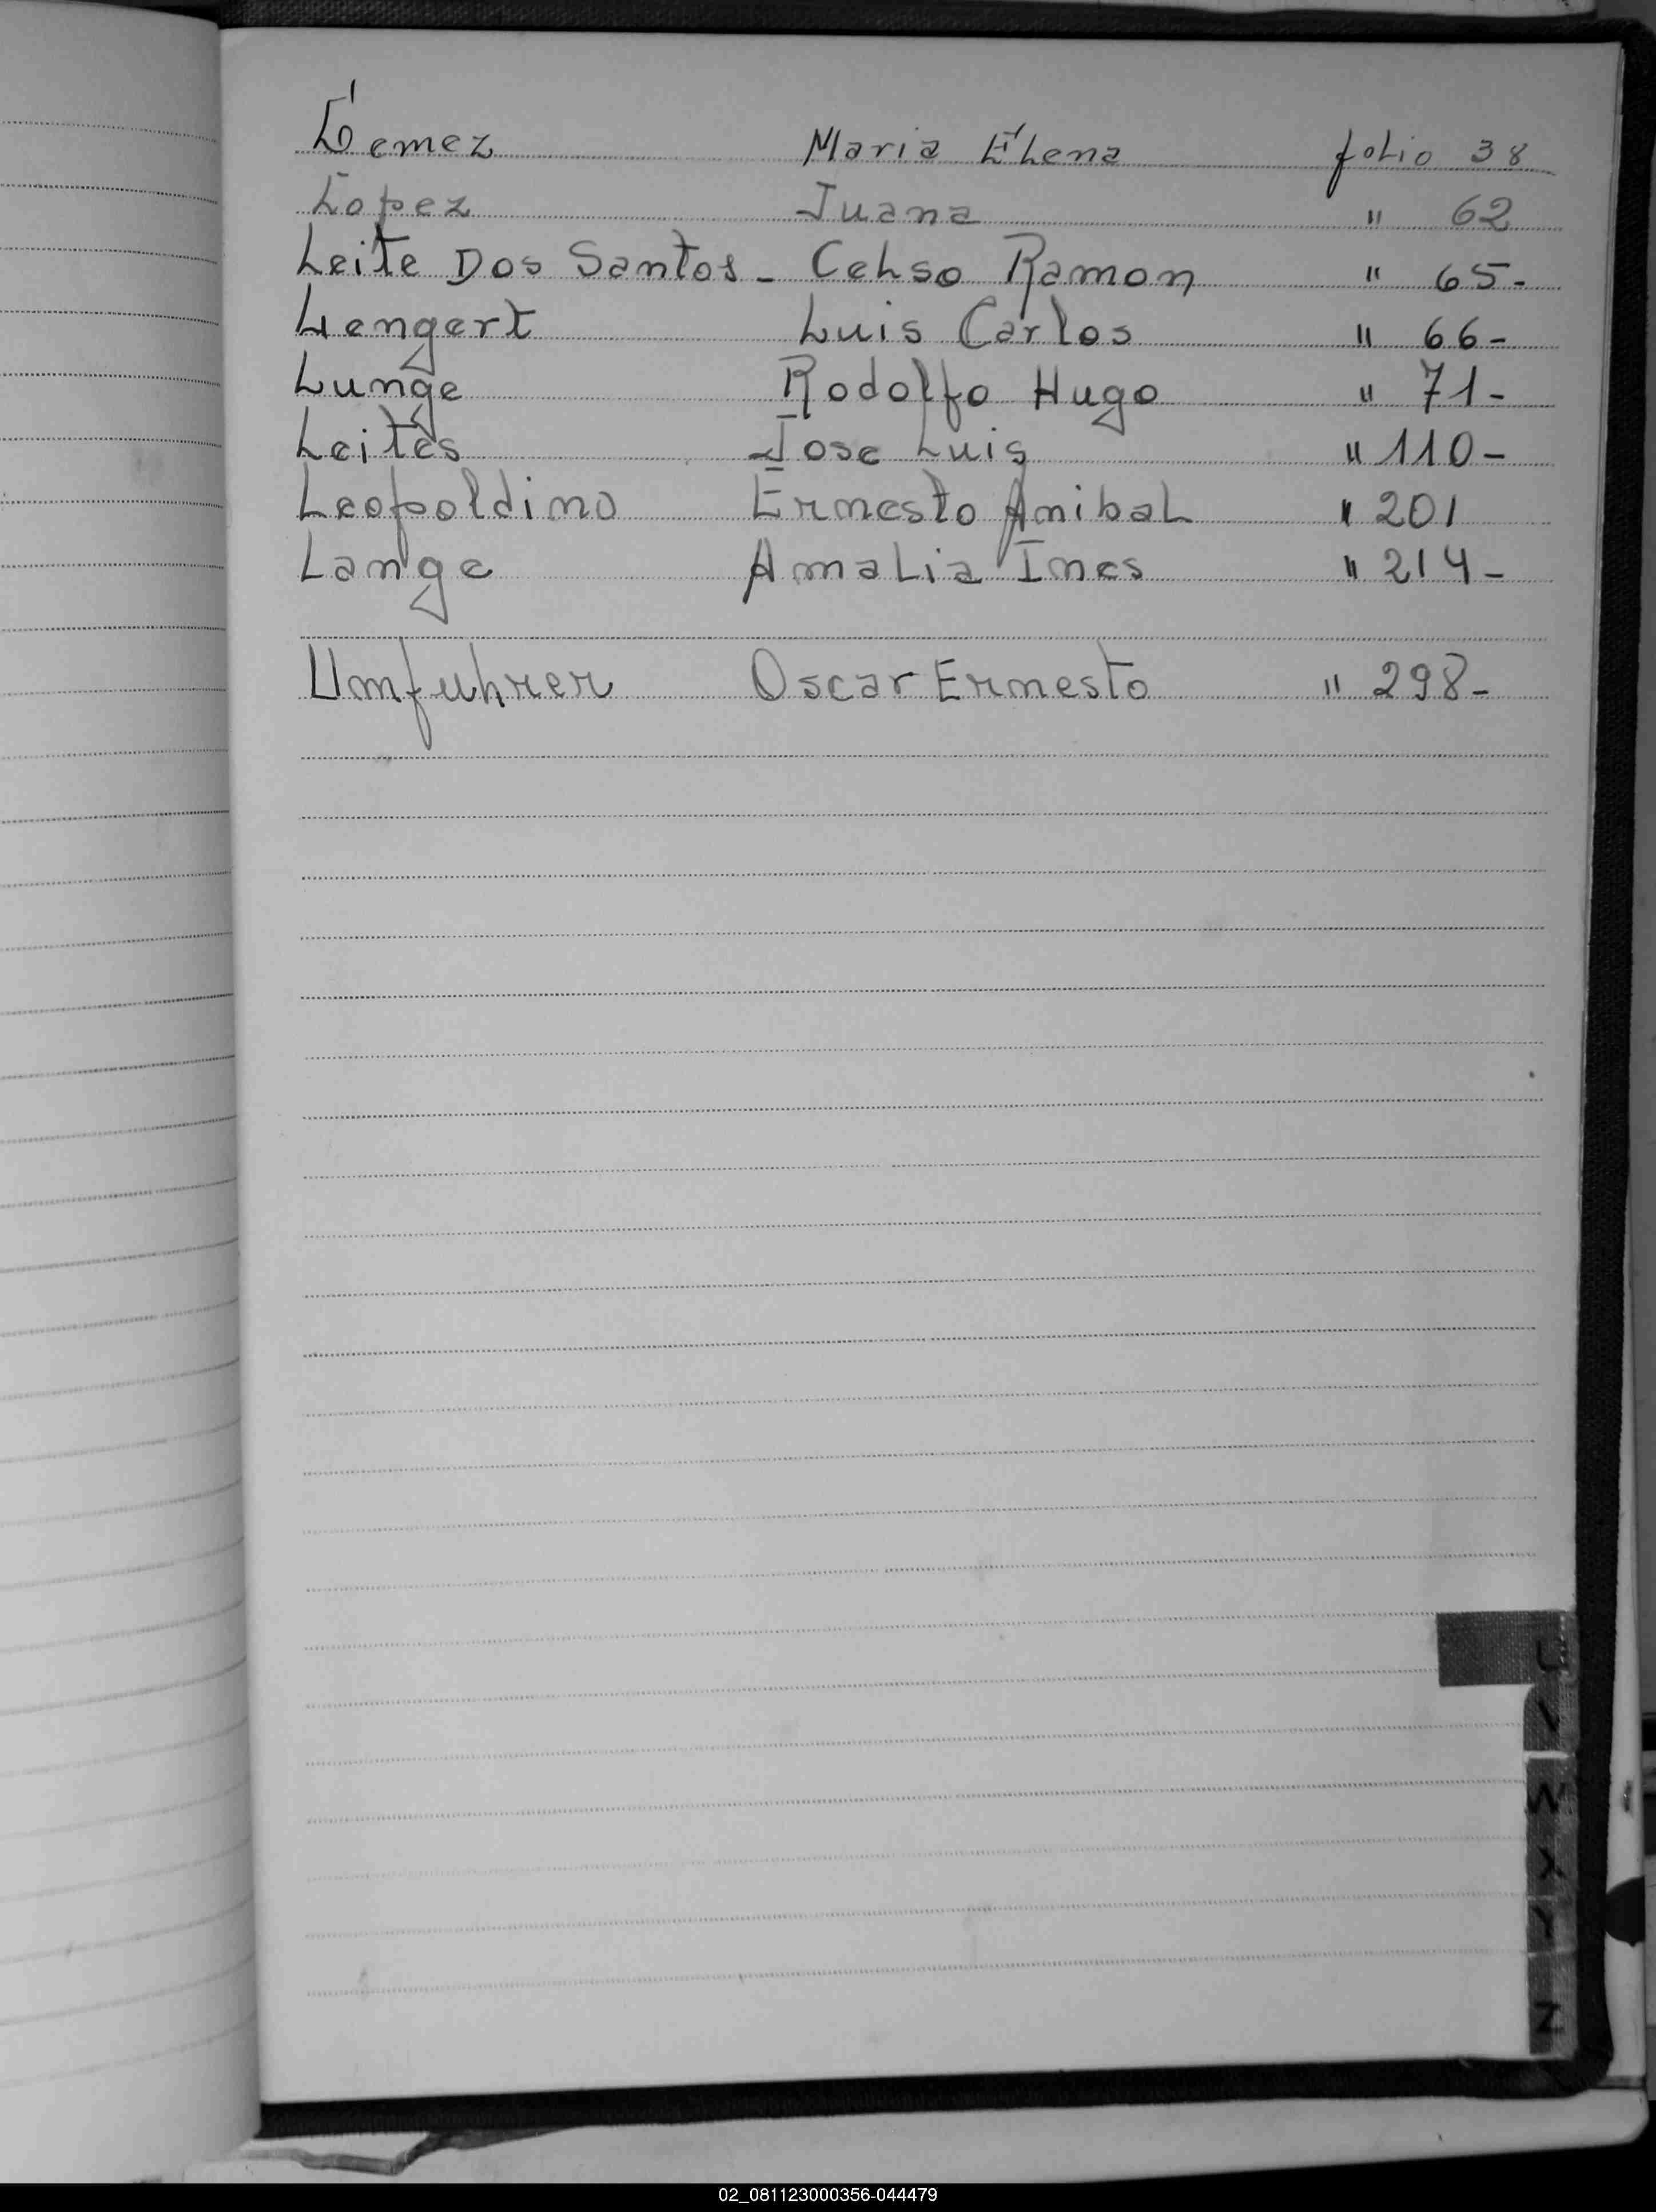 Lemez Maria Elena folio 38
Lopez Juana " 62
Leite Dos Santos - Celso Ramon " 65-
Lengert Luis Carlos " 66-
Lunge Rodolfo Hugo " 71-
Leites Jose Luis " 110-
Leopoldino Ernesto Anibal " 201
Lange Amalia Ines " 214-
Umfuhrer Oscar Ernesto " 298-
U
V
W
X
Y
Z
02_081123000356-044479